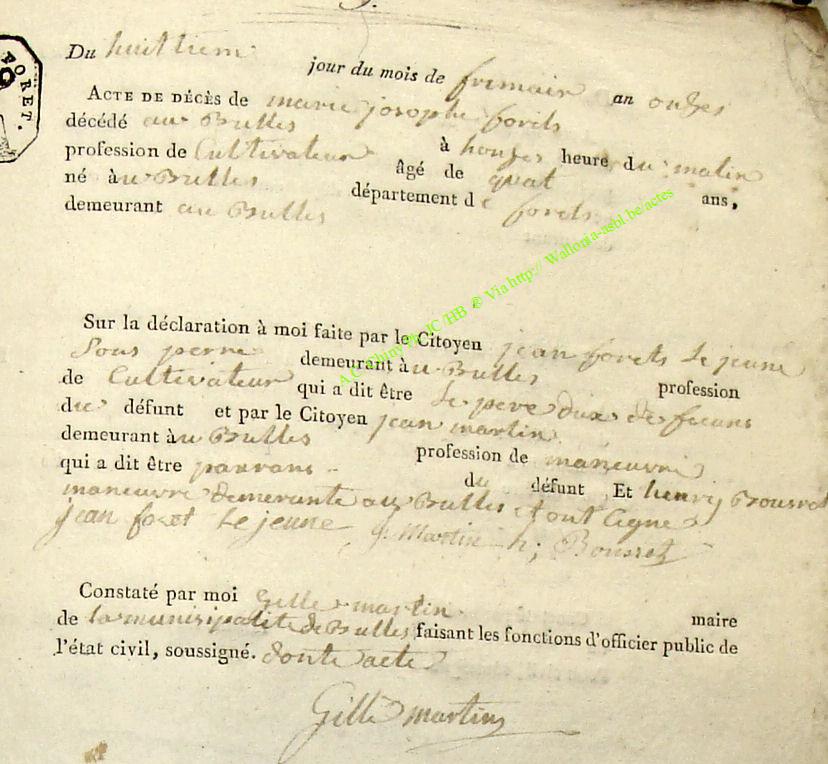 FORET.
Du huittiem jour du mois de frimair an onzes
ACTE DE DÉCÈS de marie josophe forets
décédé au Bulles à honzes heure du matin
profession de Cultivateur âgé de quat ans,
né àu Bulles département de forets
demeurant au Bulles
Sur la déclaration à moi faite par le Citoyen jean forets Le jeune
demeurant àu Bulles profession
de Cultivateur qui a dit être Le pere
du défunt et par le Citoyen jean martin
demeurant àu Bulles profession de maneuvre
qui a dit être parrans du défunt Et henry Bousret
maneuvre demeurante au Bulles tout
jean foret Le jeune j. Martin h; Bousret
Constaté par moi Gille martin maire
de la munisipalite de Bulles faisant les fonctions d'officier public de
l'état civil, soussigné. donte acte
Gille martin
A C Chiny Ph JC/HB @ Via http:// Wallonia-asbl.be/actes